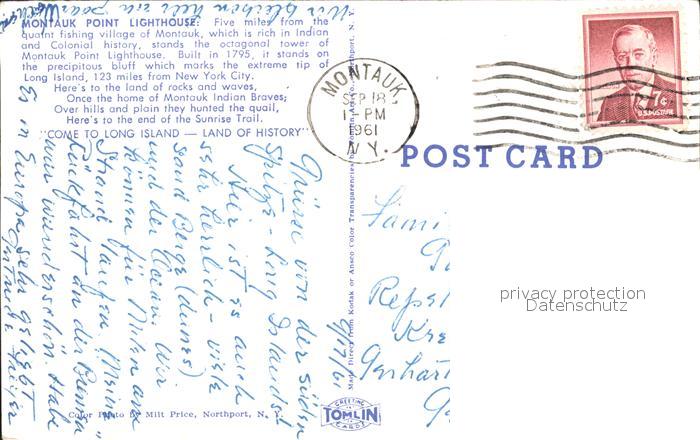 MONTAUK POINT LIGHTHOUSE: Five miles from the
quaint fishing village of Montauk, which is rich in Indian
and Colonial history, stands the octagonal tower of
Montauk Point Lighthouse. Built in 1795, it stands on
the precipitous bluff which marks the extreme tip of
Long Island, 123 miles from New York City.
Here's to the land of rocks and waves,
Once the home of Montauk Indian Braves;
Over hills and plain they hunted the quail,
Here's to the end of the Sunrise Trail.
"COME TO LONG ISLAND — LAND OF HISTORY"
Wir bleiben hier ein paar
9/17/61
Grüße von der
Spitze - Long Islands!
Hier ist es auch
sehr herrlich - viele
sand Berge (dunes)
und der Ocean. Wir
kommen für am
Strand laufen. Meine
Rückfahrt an der
war wunderschön. Habe
in Europa sehr gelebt
Color Photo by Milt Price, Northport, N. Y.
Made Direct from Kodak or Ansco Color Transparencies by Tomlin Art Co., Northport, N. Y.
GREETING
TOMLIN
CARDS
MONTAUK,
SEP 18
1961
N.Y.
7¢
U.S. POSTAGE
POST CARD
privacy protection
Datenschutz